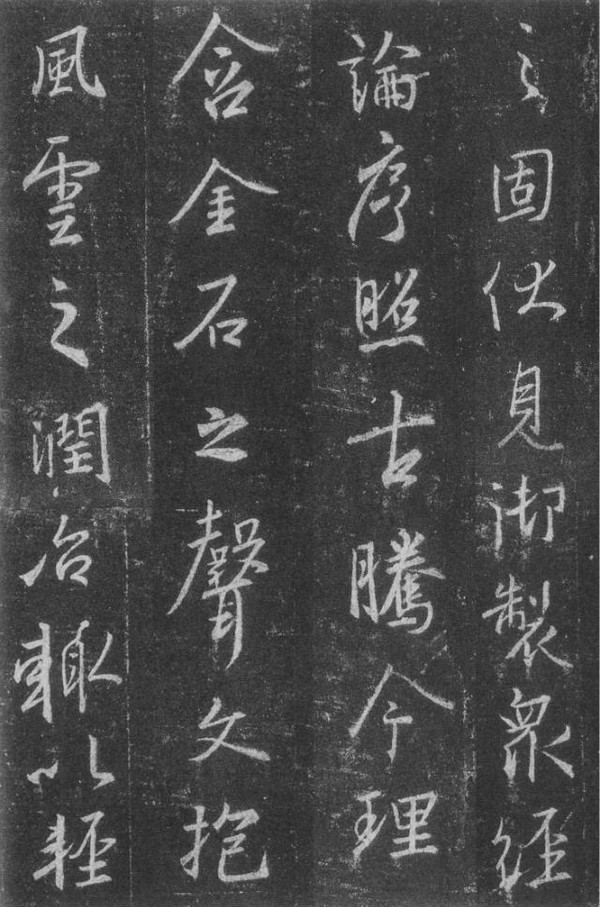 之固伏見御製衆經
論序照古騰今理
含金石之聲文抱
風雲之潤治輒以輕